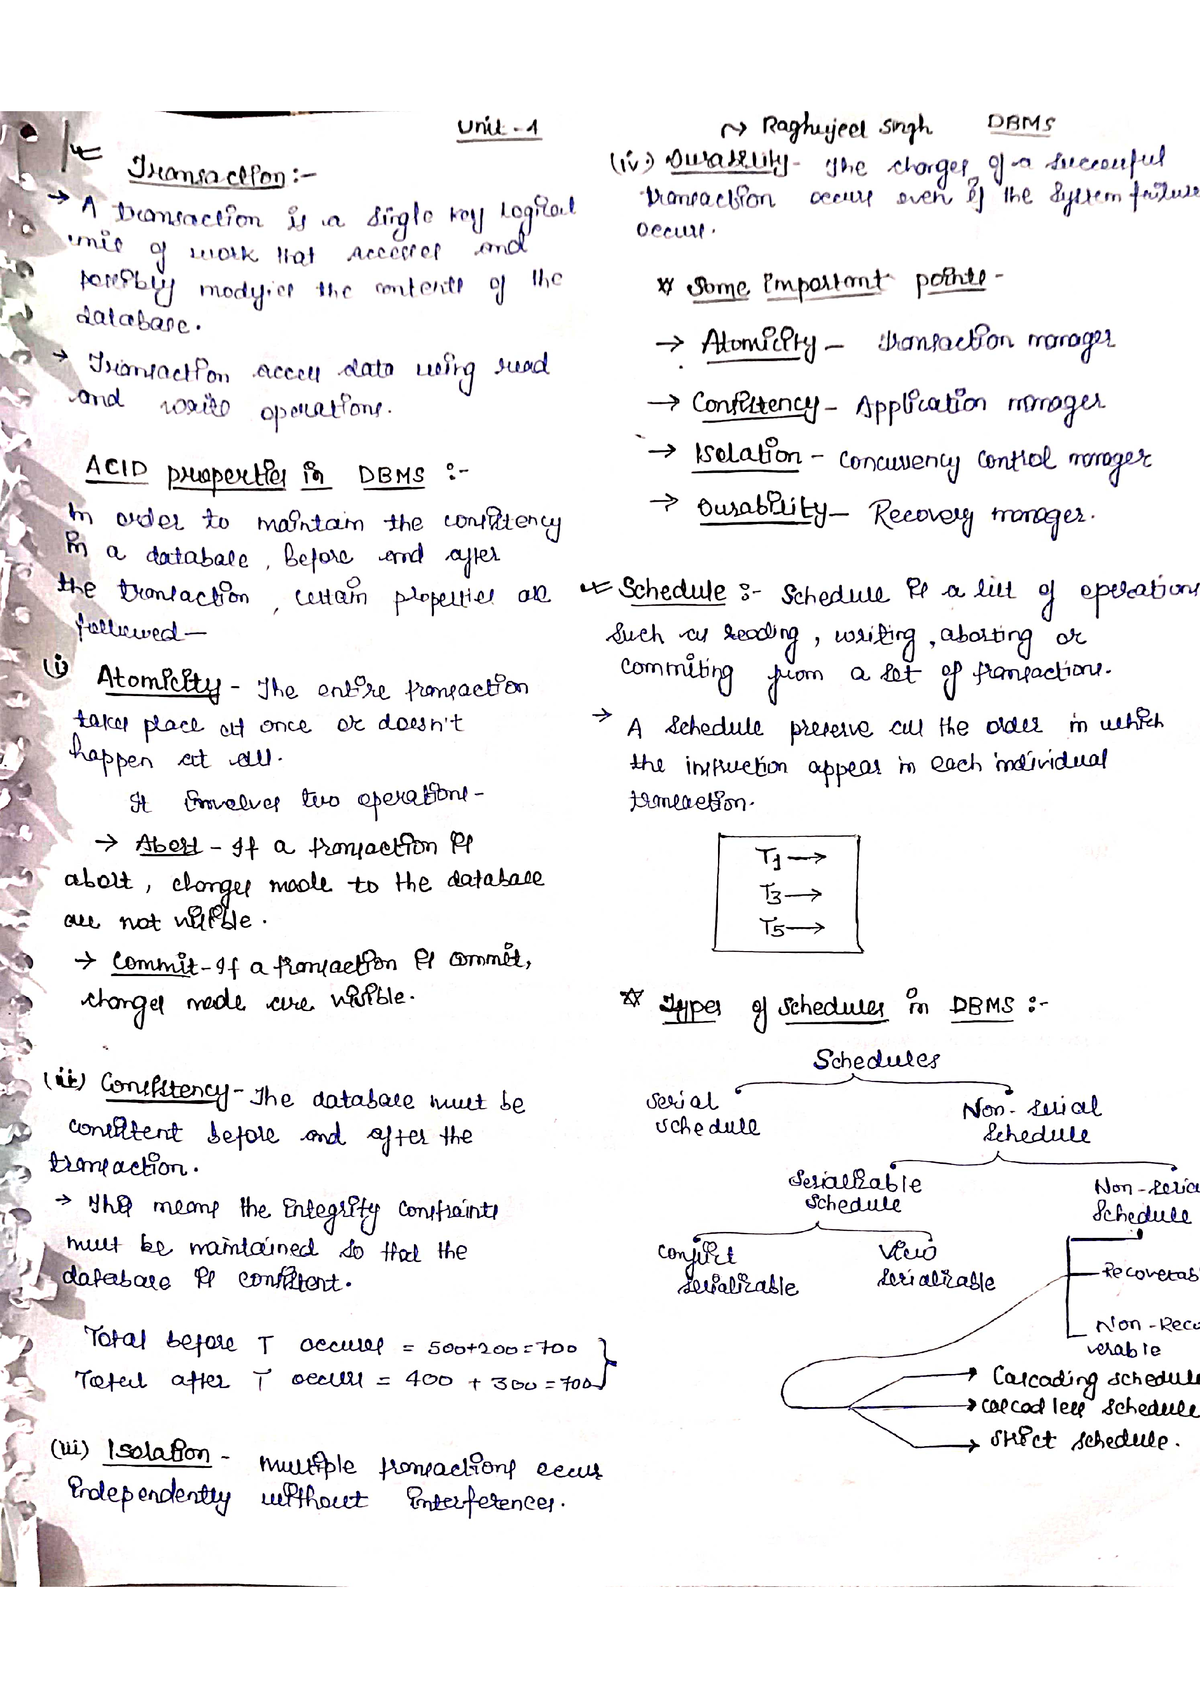 Unit - 1
Transaction :-
→ A transaction is a single key logical
unit of work that accesses and
possibly modyies the contents of the
database.
→ Transaction access data using read
and write operations.
ACID properties in DBMS :-
In order to maintain the consistency
in a database, before and after
the transaction, certain properties are
followed —
(i) Atomicity - The entire transaction
takes place at once or doesn't
happen at all.
It involves two operations -
→ Abort - If a transaction is
abort, changes made to the database
are not visible.
→ Commit - If a transaction is commit,
changes made are visible.
(ii) Consistency - The database must be
consistent before and after the
transaction.
→ This means the integrity constraints
must be maintained so that the
database is consistent.
Total before T occures = 500+200=700
Total after T occurs = 400 + 300 = 700
(iii) Isolation - multiple transactions occur
independently without interferences.
~> Raghujeet Singh DBMS
(iv) Durability - The changes of a successful
transaction occurs even if the system failure
occurs.
☆ Some important points -
→ Atomicity - transaction manager
→ Consistency - Application manager
→ Isolation - concurrency control manager
→ Durability - Recovery manager.
Schedule :- Schedule is a list of operations
such as reading, writing, aborting or
commiting from a set of transactions.
→ A schedule preserve all the order in which
the instruction appear in each individual
transaction.
T1 →
T3 →
T5 →
☆ Types of schedules in DBMS :-
Schedules
Serial
schedule
Non-serial
schedule
Serializable
schedule
Non-seria
schedule
Conflict
serializable
View
serializable
Recoverab
Non-Reco
verable
→ Cascading schedule
→ cascadless schedule
→ strict schedule.